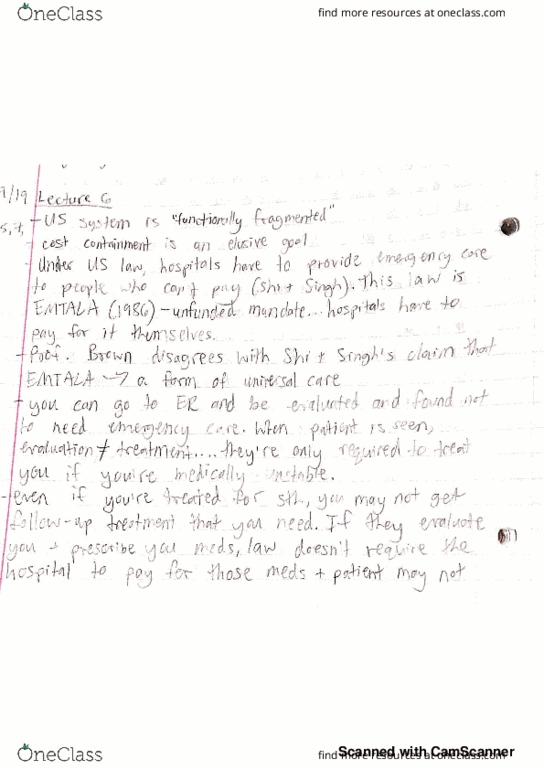 OneClass
find more resources at oneclass.com
9/19 Lecture 6
- US system is "functionally fragmented"
- cost containment is an elusive goal
- Under US law, hospitals have to provide emergency care
to people who can't pay (Shi + Singh). This law is
EMTALA (1986) - unfunded mandate... hospitals have to
pay for it themselves.
- Prof. Brown disagrees with Shi + Singh's claim that
EMTALA → a form of universal care
- you can go to ER and be evaluated and found not
to need emergency care. When patient is seen,
evaluation ≠ treatment.... they're only required to treat
you if you're medically unstable.
- even if you're treated for sth, you may not get
follow-up treatment that you need. If they evaluate
you + prescribe you meds, law doesn't require the
hospital to pay for those meds + patient may not
OneClass
find more resources at oneclass.com
Scanned with CamScanner